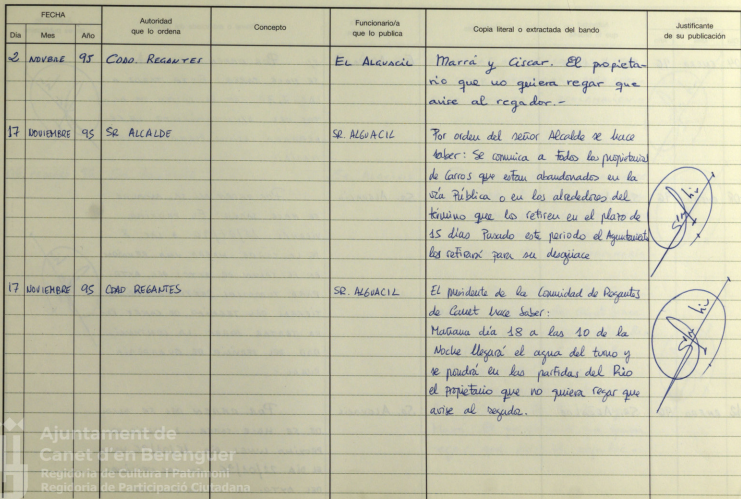 FECHA
Día Mes Año
Autoridad
que lo ordena
Concepto
Funcionario/a
que lo publica
Copia literal o extractada del bando
Justificante
de su publicación
2 NOVBRE 95 COAD. REGANTES EL ALGUACIL Marrá y Ciscar. El propieta-
rio que no quiera regar que
avise al regador.-
17 NOVIEMBRE 95 SR ALCALDE SR. ALGUACIL Por orden del señor Alcalde se hace
saber: Se comunica a todos los propietarios
de Carros que estan abandonados en la
vía Pública o en los alrededores del
término que los retiren en el plazo de
15 días Pasado este periodo el Ayuntamiento
los retirará para su desgüace
17 NOVIEMBRE 95 COAD REGANTES SR. ALGUACIL El presidente de la Comunidad de Regantes
de Canet hace Saber:
Mañana día 18 a las 10 de la
Noche llegará el agua del turno y
se pondrá en las partidas del Rio
el Propietario que no quiera regar que
avise al regador.
Ajuntament de
Canet d'en Berenguer
Regidoria de Cultura i Patrimoni
Regidoria de Participació Ciutadana